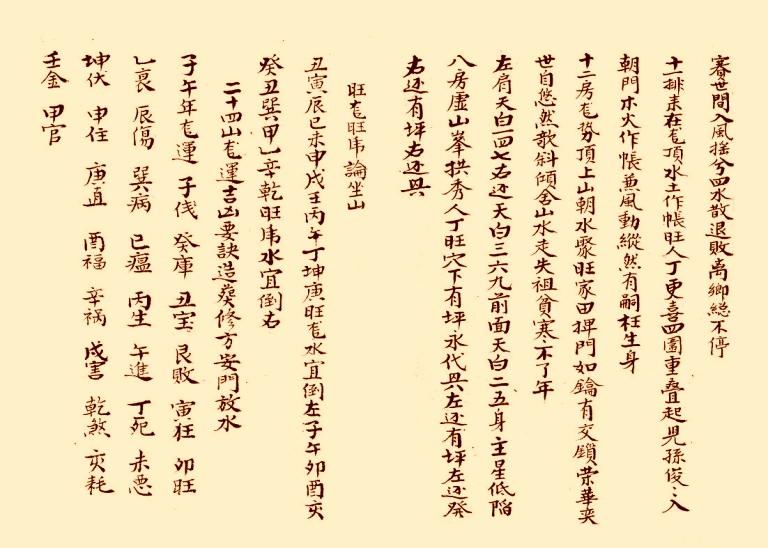 審世間入風搖兮四水散退敗离鄉縂不停
十一排來在龙頂水土作帳旺人丁更喜四圍重叠起児孫俊〻入
朝門木火作帳兼風動縱然有嗣枉生身
十二房龙势頂上山朝水聚旺家田捍門如鑰有交鎖荣華奕
世自悠然欹斜傾舍山水走失祖貧寒不了年
左肩天白一四七右边天白三六九前面天白二五身主星低陷
八房虛山峯拱秀人丁旺穴下有坪永代㒷左边有坪左边發
右边有坪右边㒷
旺龙旺虎論坐山
丑寅辰巳未申戌壬丙午丁坤庚旺龙水宜倒左子午卯酉亥
癸丑巽甲乙辛乾旺虎水宜倒右
二十四山龙運吉凶要訣造葵修方安門放水
子午年龙運 子伐 癸庫 丑宝 艮敗 寅狂 卯旺
乙哀 辰傷 巽病 巳瘟 丙生 午進 丁死 未恶
坤伏 申住 庚直 酉福 辛祸 戌害 乾煞 亥耗
壬金 甲官